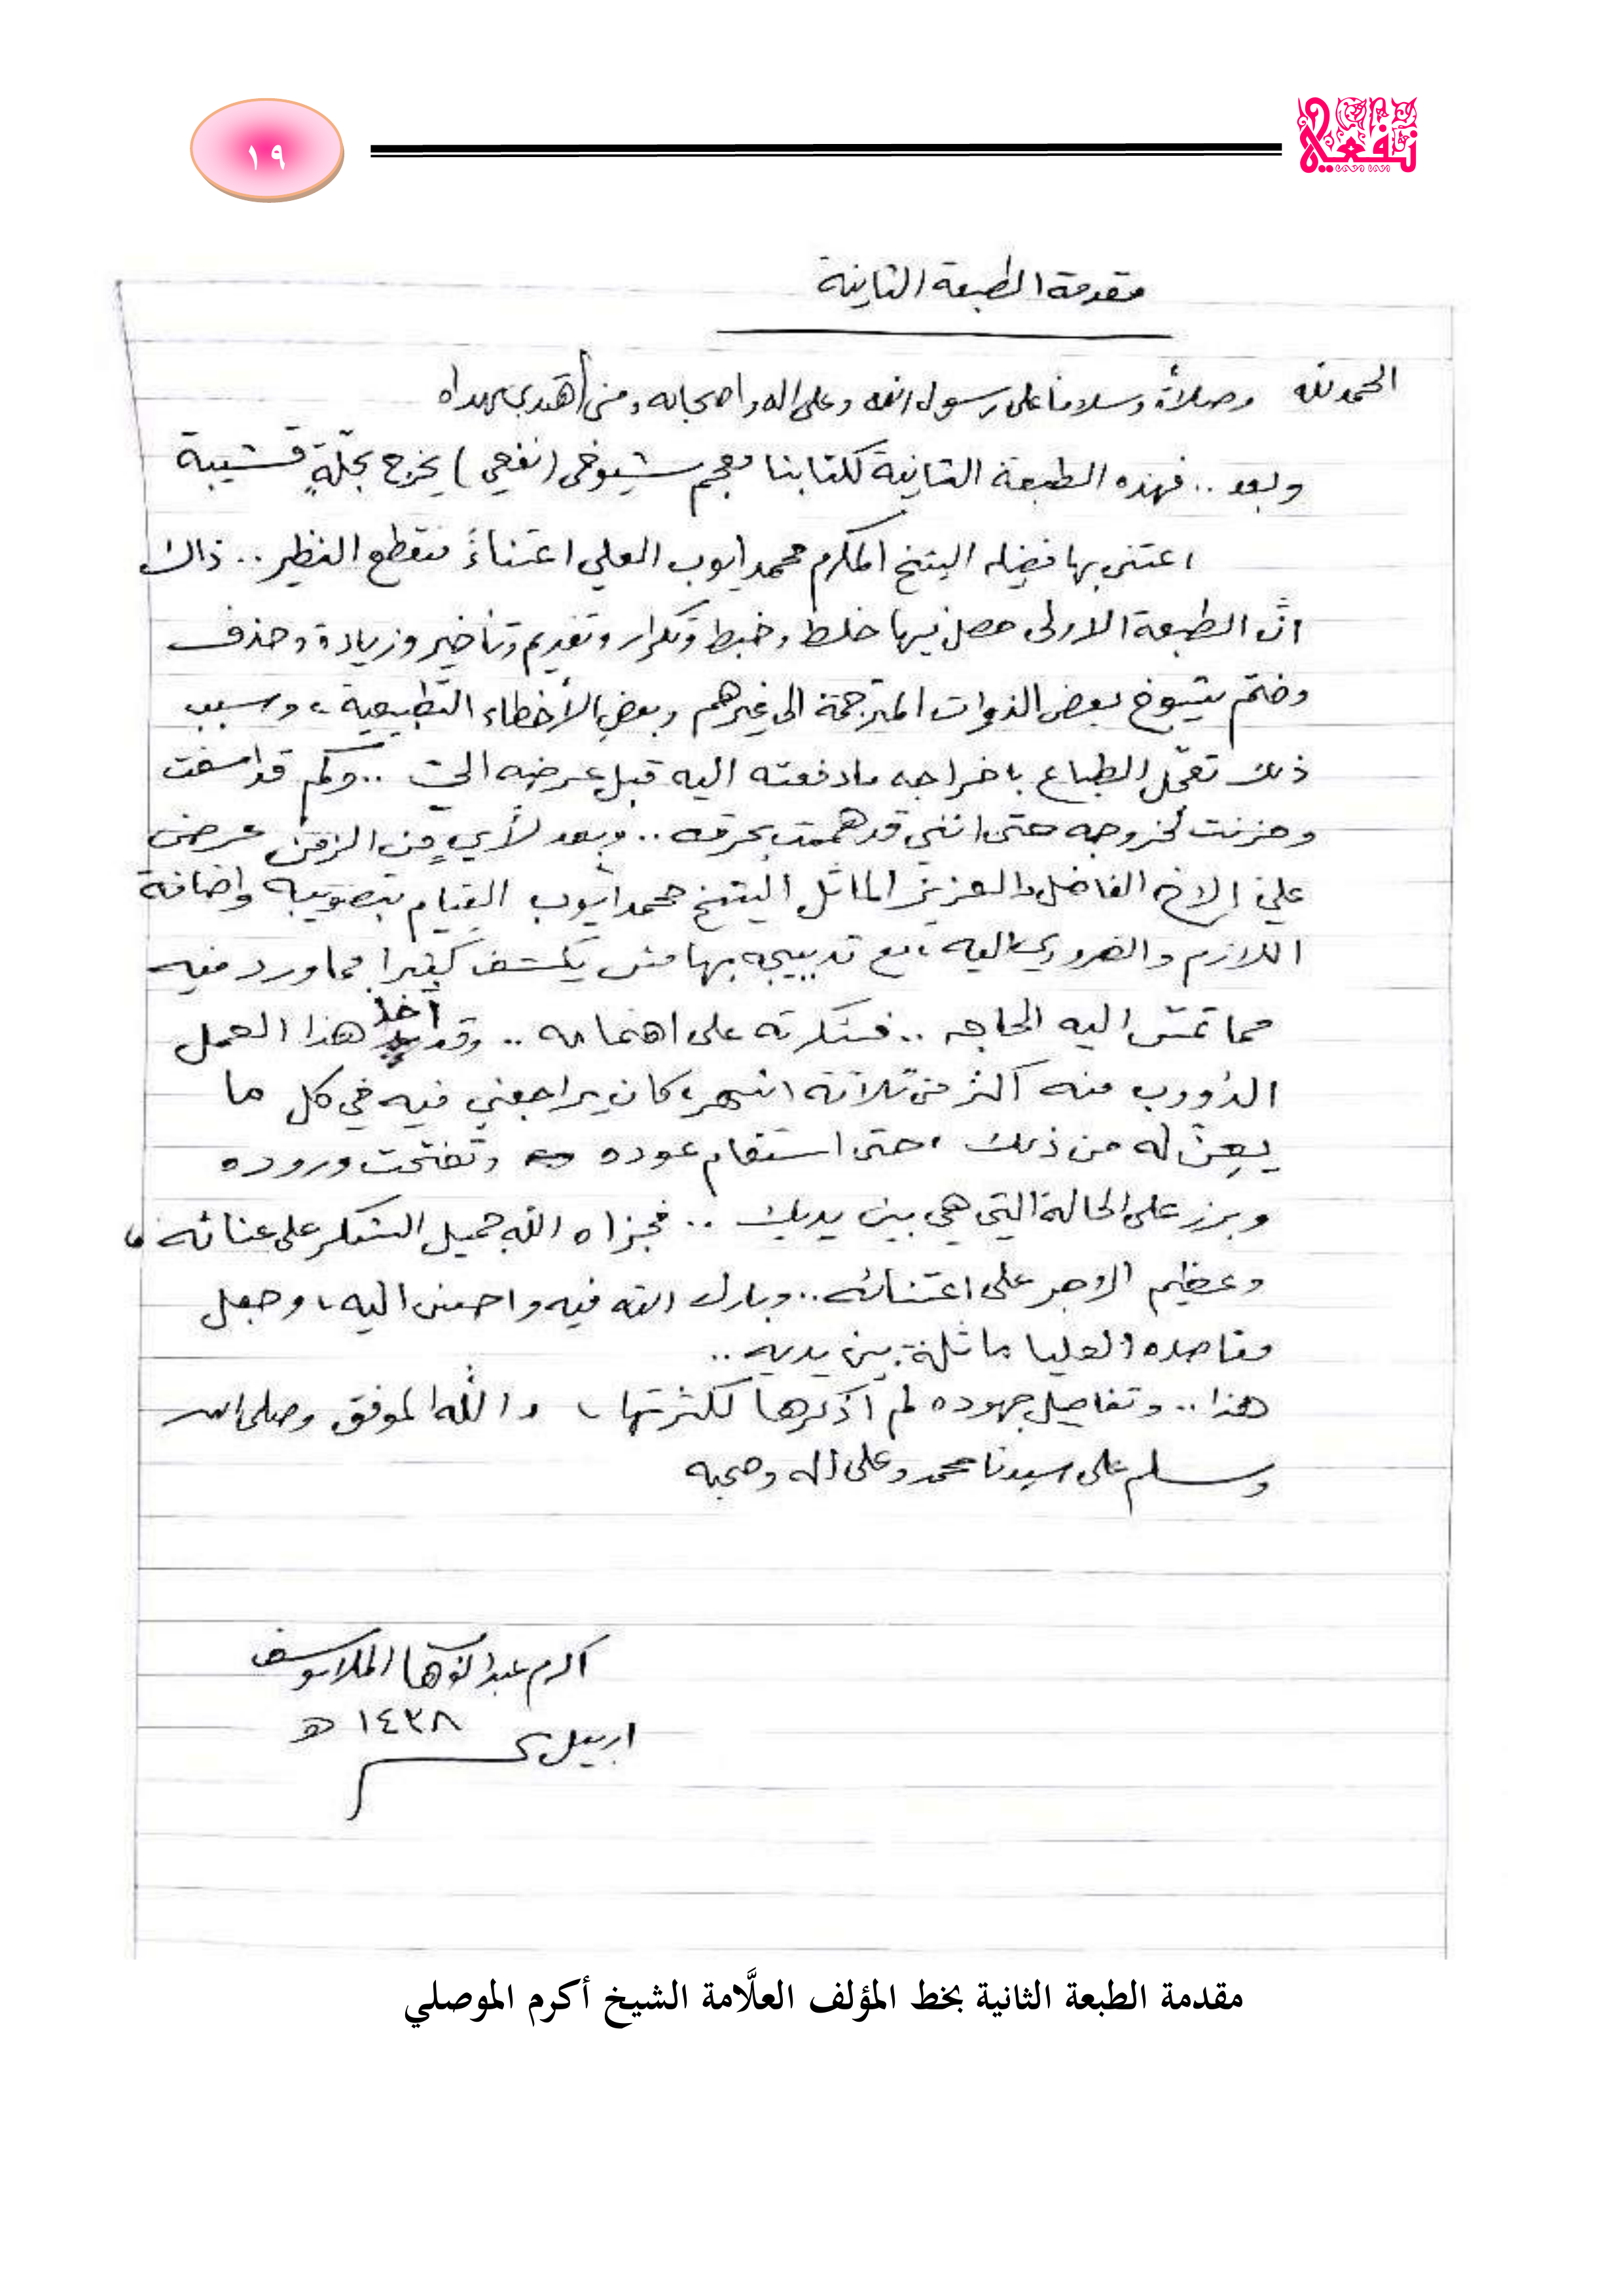 نفعي
١٩
مقدمة الطبعة الثانية
الحمد لله وصلاة وسلاما على رسول الله وعلى اله واصحابه ومن أهتدى بهداه
وبعد .. فهذه الطبعة الثانية لكتابنا معجم شيوخي (نفعي) يخرج بحلّةٍ قشيبة
اعتنى بها فضيله الشيخ المكرم محمد ايوب العلي اعتناءً منقطع النظير .. ذاك
انّ الطبعة الاولى حصل فيها خلط وخبط وتكرار وتقديم وتأخير وزيادة وحذف
وضمّ شيوخ بعض الذوات المترجمة الى غيرهم وبعض الأخطاء التطبيعية، وسبب
ذلك تعجّل الطباع باخراجه مادفعته اليه قبل عرضه اليّ .. وكم قد اسفت
وحزنت لخروجه حتى انني قد هممت بحرقه .. وبعد لأيٍ من الزمن عرض
عليّ الاخ الفاضل والعزيز الماثل الشيخ محمد ايّوب القيام بتصويبه واضافة
اللازم والضروري اليه، مع تدبيجه بهامش يكشف كثيرا مما ورد فيه
مما تمسّ اليه الحاجه .. فشكرته على اهتمامه .. وقد أخذ هذا العمل
الدؤوب منه اكثر من ثلاثة اشهر، كان يراجعني فيه في كل ما
يعِنّ له من ذلك، حتى استقام عوده وتفتحت وروده
وبرز على الحالة التي هي بين يديك .. فجزاه الله جميل الشكر على عنائه،
وعظيم الاجر على اعتنائه .. وبارك الله فيه واحسن اليه، وجعل
مقاصده العليا ماثلة بين يديه ..
هذا .. وتفاصيل جهوده لم اذكرها لكثرتها، والله الموفق وصلى الله
وسلم على سيدنا محمد وعلى اله وصحبه
اكرم عبد الوهاب الملا يوسف
اربيل
١٤٣٨ هـ
مقدمة الطبعة الثانية بخط المؤلف العلَّامة الشيخ أكرم الموصلي